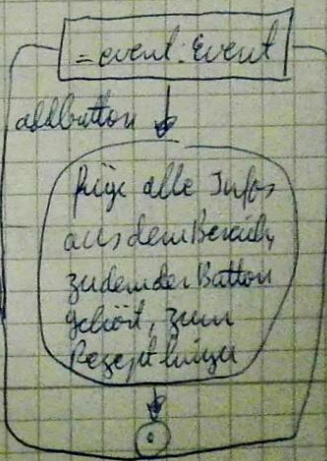 =event:Event
addbutton
Füge alle Infos
aus dem Bereich,
zu dem der Button
gehört, zum
Rezept hinzu